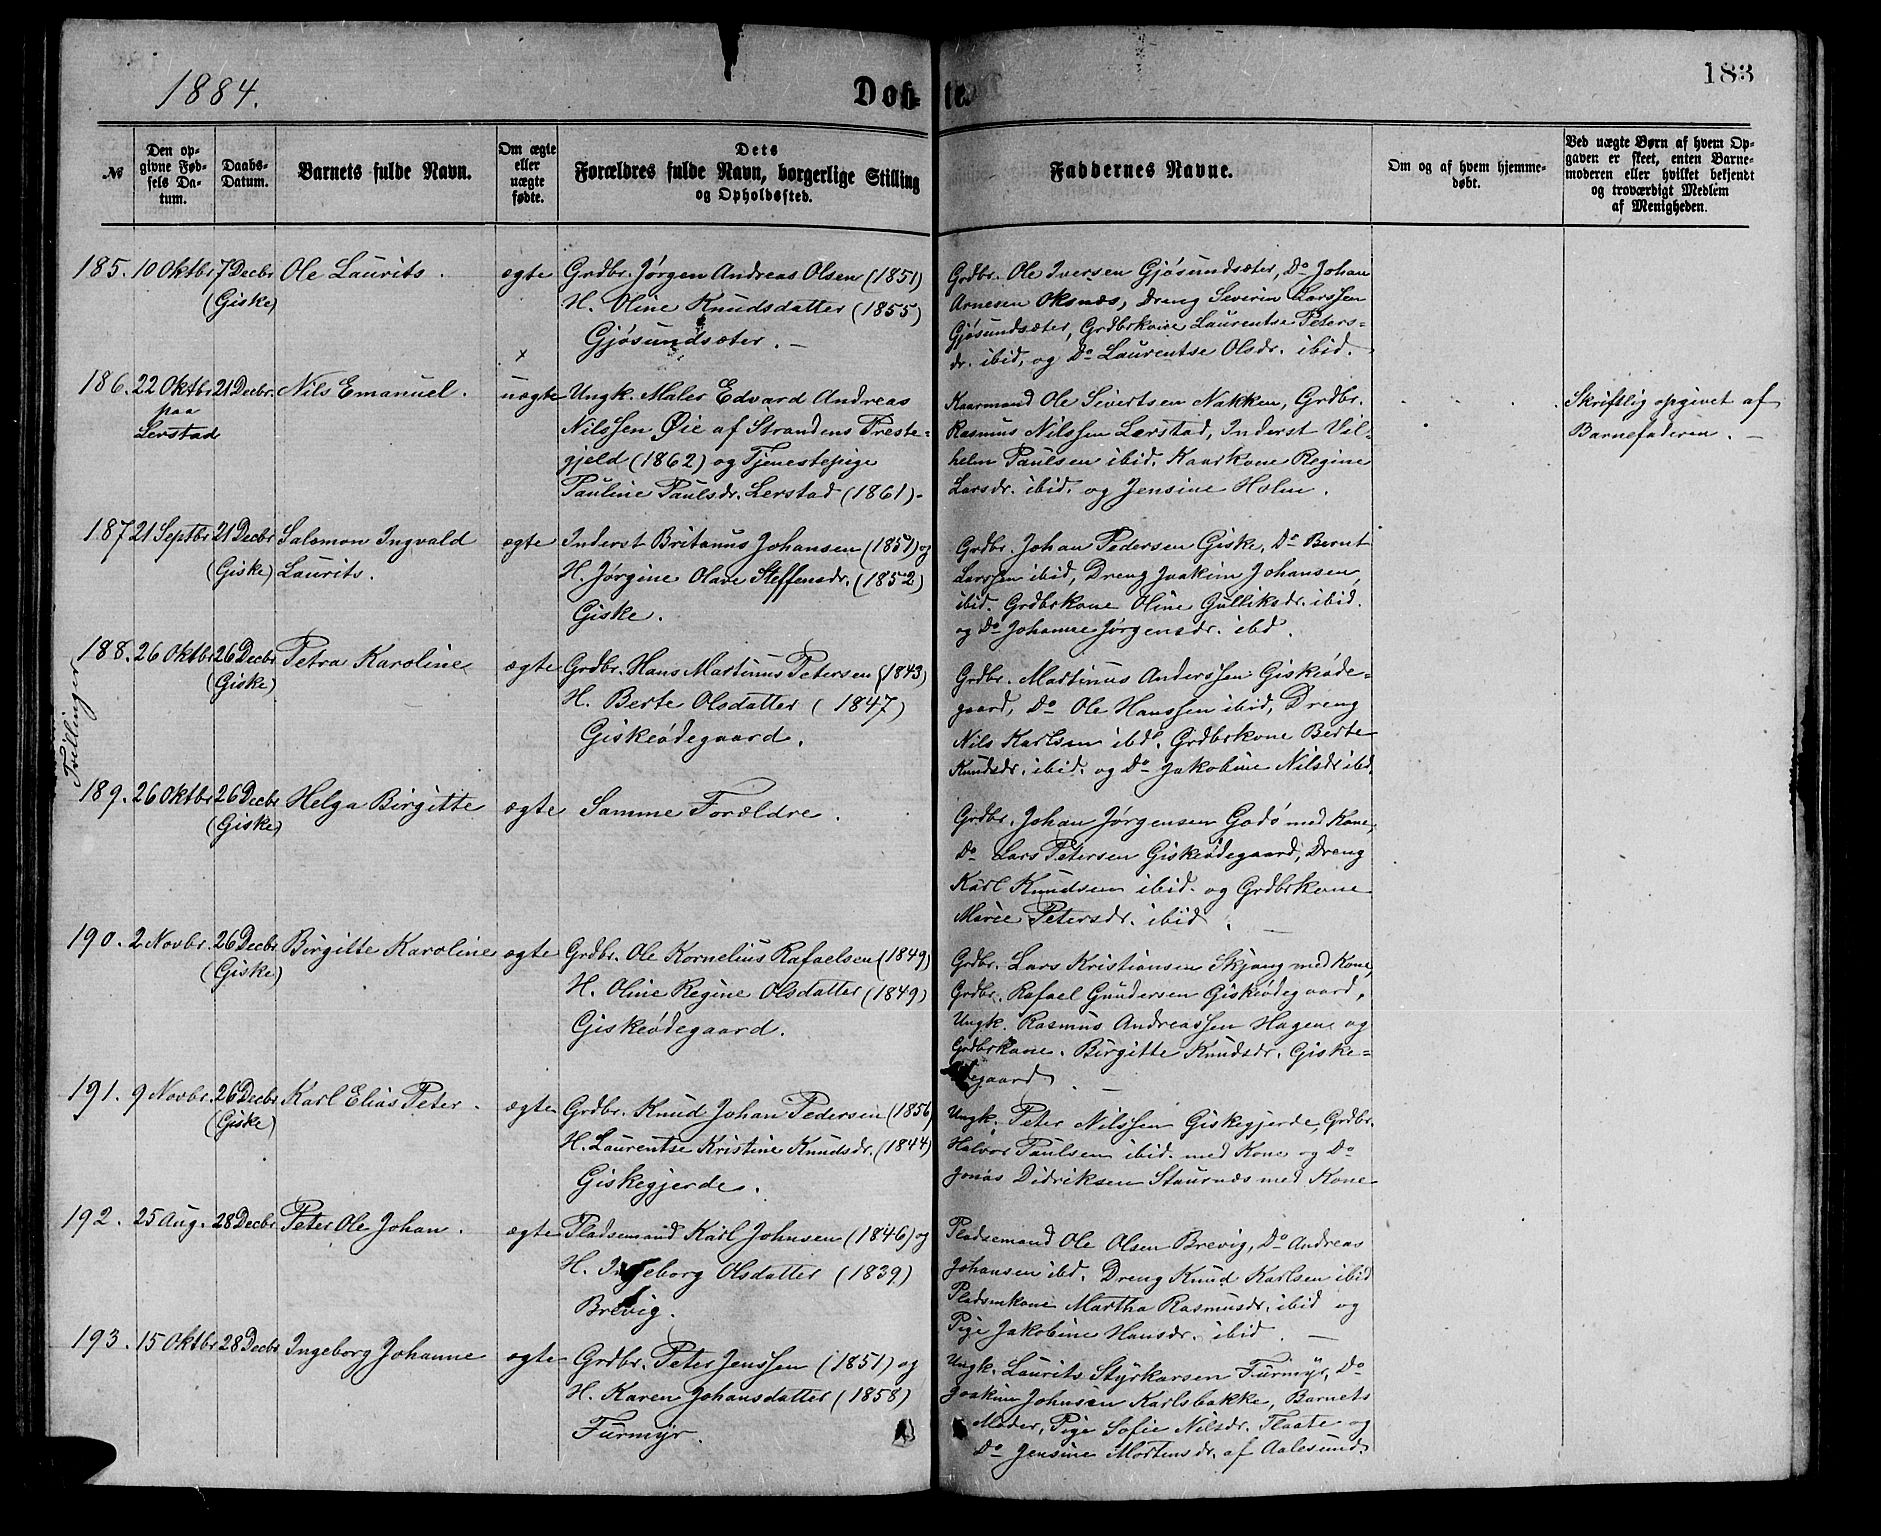 183
1884.
Døb- te.
№
Den op-
givne Fød-
sels Da-
tum.
Daabs-
Datum.
Barnets fulde Navn.
Om ægte
eller
uægte
fødte.
Dets
Forældres fulde Navn, borgerlige Stilling
og Opholdssted.
Faddernes Navne.
Om og af hvem hjemme-
døbt.
Ved uægte Børn af hvem Op-
gaven er skeet, enten Barne-
moderen eller hvilket bekjendt
og troværdigt Medlem
af Menigheden.
185. 10 Oktbr 7 Decbr (Giske) Ole Laurits. ægte
Grdbr. Jørgen Andreas Olsen (1851)
H. Oline Knudsdatter (1855)
Gjøsundsæter. —
Grdbr. Ole Iversen Gjøsundsæter, Do Johan
Arnesen Oksnæs, Dreng Severin Larssen
Gjøsundsæter, Grdbrkone Laurentse Peters-
dr. ibid, og Do Laurentse Olsdr. ibid.
186. 22 Oktbr paa Lerstad 21 Decbr. Nils Emanuel. x uægte
Ungk. Maler Edvard Andreas
Nilssen Øie af Strandens Preste-
gjeld (1862) og Tjenestepige
Pauline Paulsdr. Lerstad (1861).
Kaarmand Ole Sivertsen Nakken, Grdbr.
Rasmus Nilssen Lerstad, Inderst Vil-
helm Paulsen ibid. Kaarkone Regine
Larsdr. ibid. og Jensine Holm.
Skriftlig opgivet af
Barnefaderen. —
187 21 Septbr 21 Decbr (Giske) Salomon Ingvald
Laurits. ægte
Inderst Britanus Johansen (1851) og
H. Jørgine Olave Steffensdr. (1852)
Giske.
Grdbr. Johan Pedersen Giske, Do Bernt
Larssen ibid, Dreng Joakim Johansen,
ibid. Grdbrkone Oline Gulliksdr. ibid.
og Do Johanne Jørgensdr. ibd.
Tvillinger
188. 26 Oktbr 26 Decbr (Giske) Petra Karoline ægte
Grdbr. Hans Martinus Petersen (1843)
H. Berte Olsdatter (1847)
Giskeødegaard.
Grdbr. Martinus Anderssen Giskeøde-
gaard, Do Ole Hanssen ibid, Dreng
Nils Karlsen ibd. Grdbrkone Berte
Knudsdr. ibid. og Do Jakobine Nilsdr ibd
189. 26 Oktbr 26 Decbr (Giske) Helga Birgitte ægte
Samme Forældre.
Grdbr. Johan Jørgensen Godø med Kone,
Do Lars Petersen Giskeødegaard, Dreng
Karl Knudsen ibid. og Grdbrkone
Marie Petersdr. ibid.
190. 2 Novbr. 26 Decbr (Giske) Birgitte Karoline ægte
Grdbr. Ole Kornelius Rafaelsen (1849)
H. Oline Regine Olsdatter (1849)
Giskeødegaard.
Grdbr. Lars Kristiansen Skjong med Kone,
Grdbr. Rafael Gundersen Giskeødegaard,
Ungk. Rasmus Andreassen Hagen og
Grdbrkone. Birgitte Knudsdr. Giske-
ødegaard. —
191. 9 Novbr. 26 Decbr (Giske) Karl Elias Peter. ægte
Grdbr. Knud Johan Pedersen (1856
H. Laurentse Kristine Knudsdr. (1844)
Giskegjerde.
Ungk. Peter Nilssen Giskegjerde, Grdbr.
Halvor Paulsen ibid. med Kone og Do
Jonas Didriksen Staurnæs med Kone
192. 25 Aug. 28 Decbr Peter Ole Johan. ægte
Pladsemand Karl Johnsen (1846) og
H. Ingeborg Olsdatter (1839)
Brevig.
Pladsemand Ole Olsen Brevig, Do Andreas
Johansen ibd. Dreng Knud Karlsen ibid
Pladsmkone Martha Rasmusdr. ibid og
Pige Jakobine Hansdr. ibid. —
193. 15 Oktbr 28 Decbr Ingeborg Johanne ægte
Grdbr. Peter Jenssen (1851) og
H. Karen Johansdatter (1858)
Furmyr.
Ungk. Laurits Styrkarsen Furmyr, Do
Joakim Johnsen Karlsbakke, Barnets
Moder, Pige Sofie Nilsdr. Flaate og
Do Jensine Mortensdr. af Aalesund.